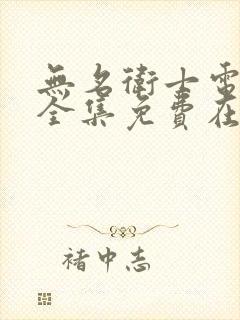 無名衛士電
全集免費在
褚中志